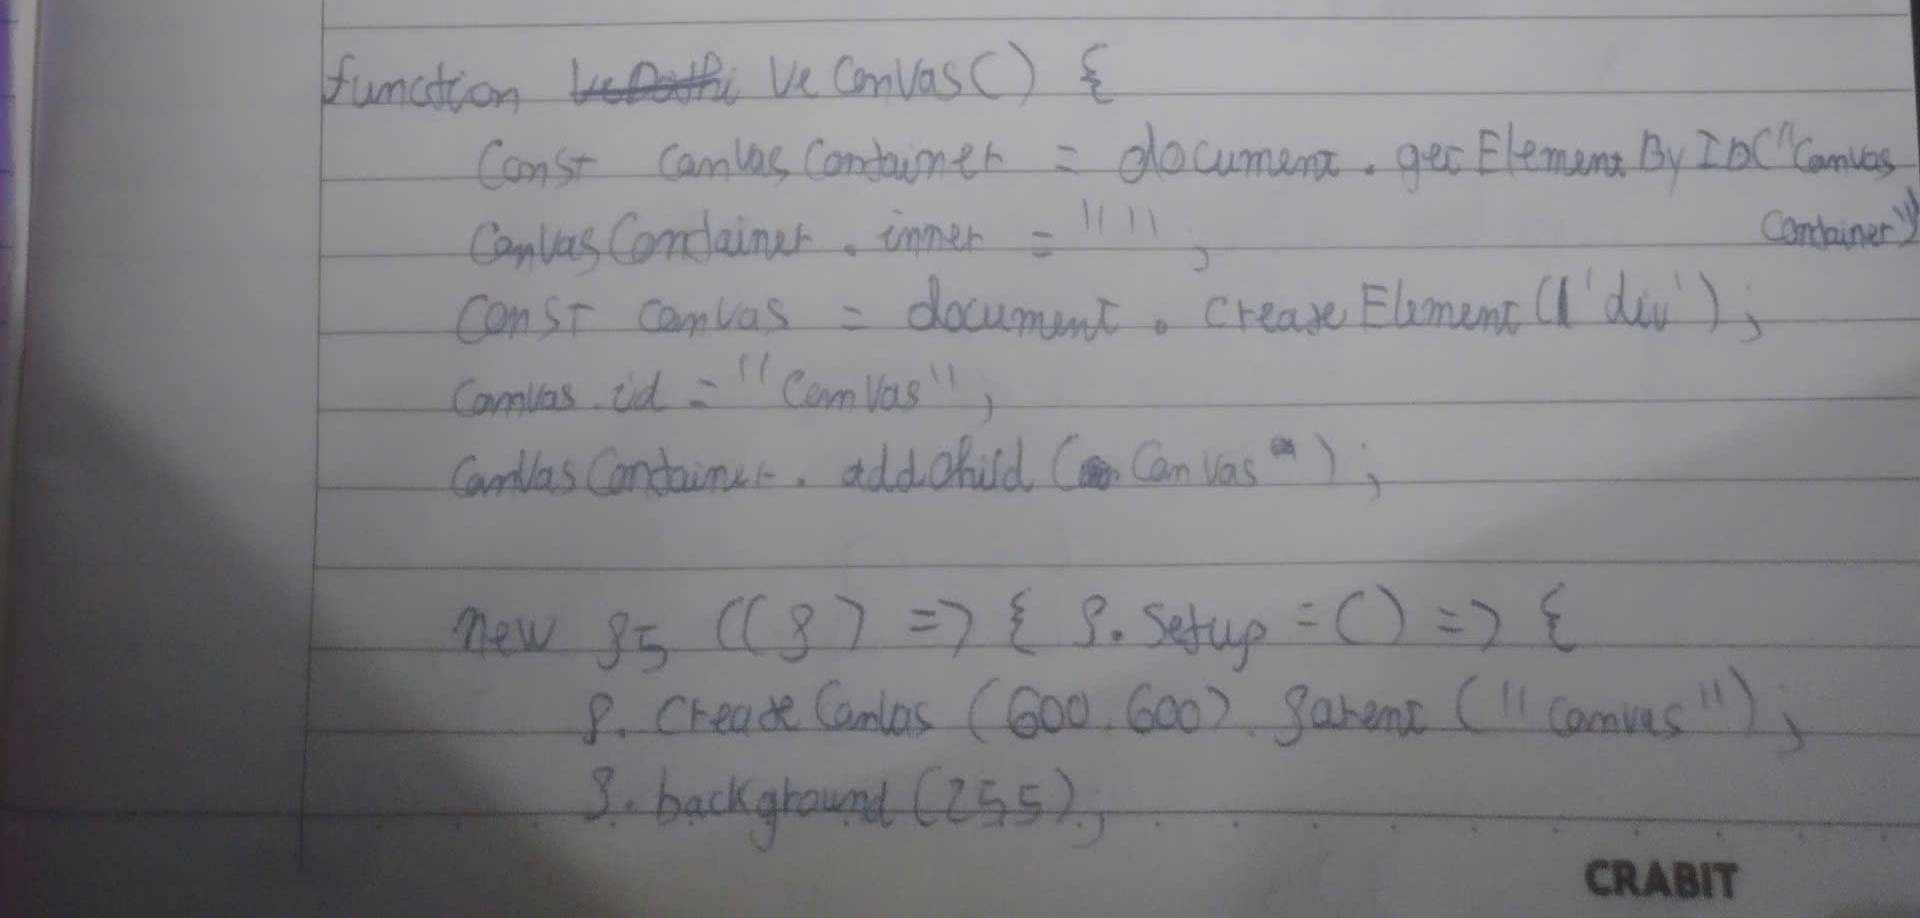 function veCanvas() {
const canvasContainer = document.getElementByID("canvas
container")
canvasContainer.inner = "";
const canvas = document.createElement('div');
canvas.id = "canvas";
canvasContainer.addChild(canvas);
new p5 ((p) => { p.setup = () => {
p.createCanvas (600,600).parent ("canvas");
p.background(255);
CRABIT